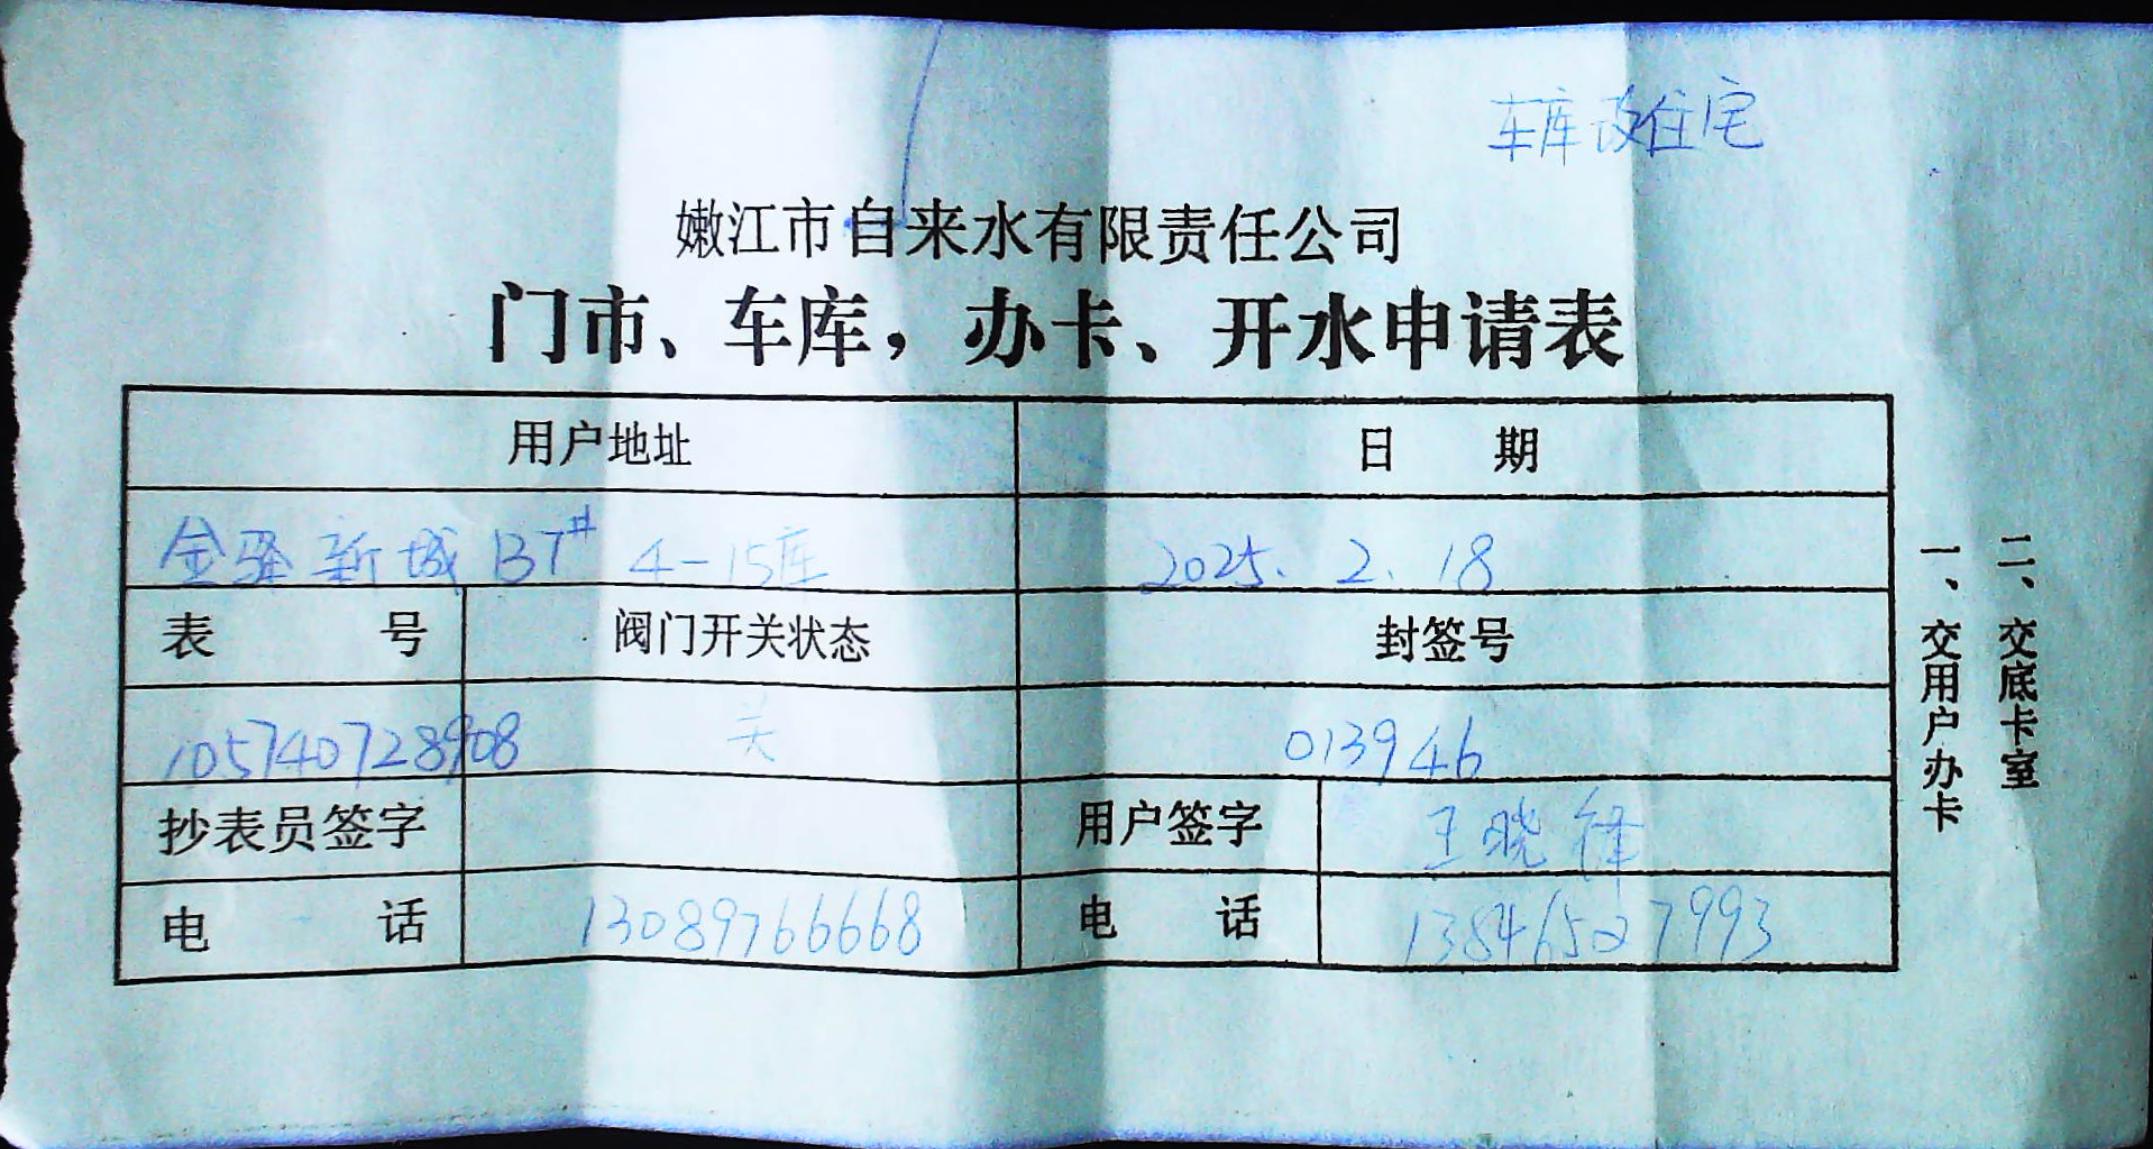 车库改住宅
嫩江市自来水有限责任公司
门市、车库，办卡、开水申请表
用户地址 日 期
金驿新城 B7# 4-15库 2025.2.18
表 号 阀门开关状态 封签号
105740728908 关 013946
抄表员签字 用户签字 王晓锋
电 话 13089766668 电 话 13846527993
一、交用户办卡
二、交底卡室